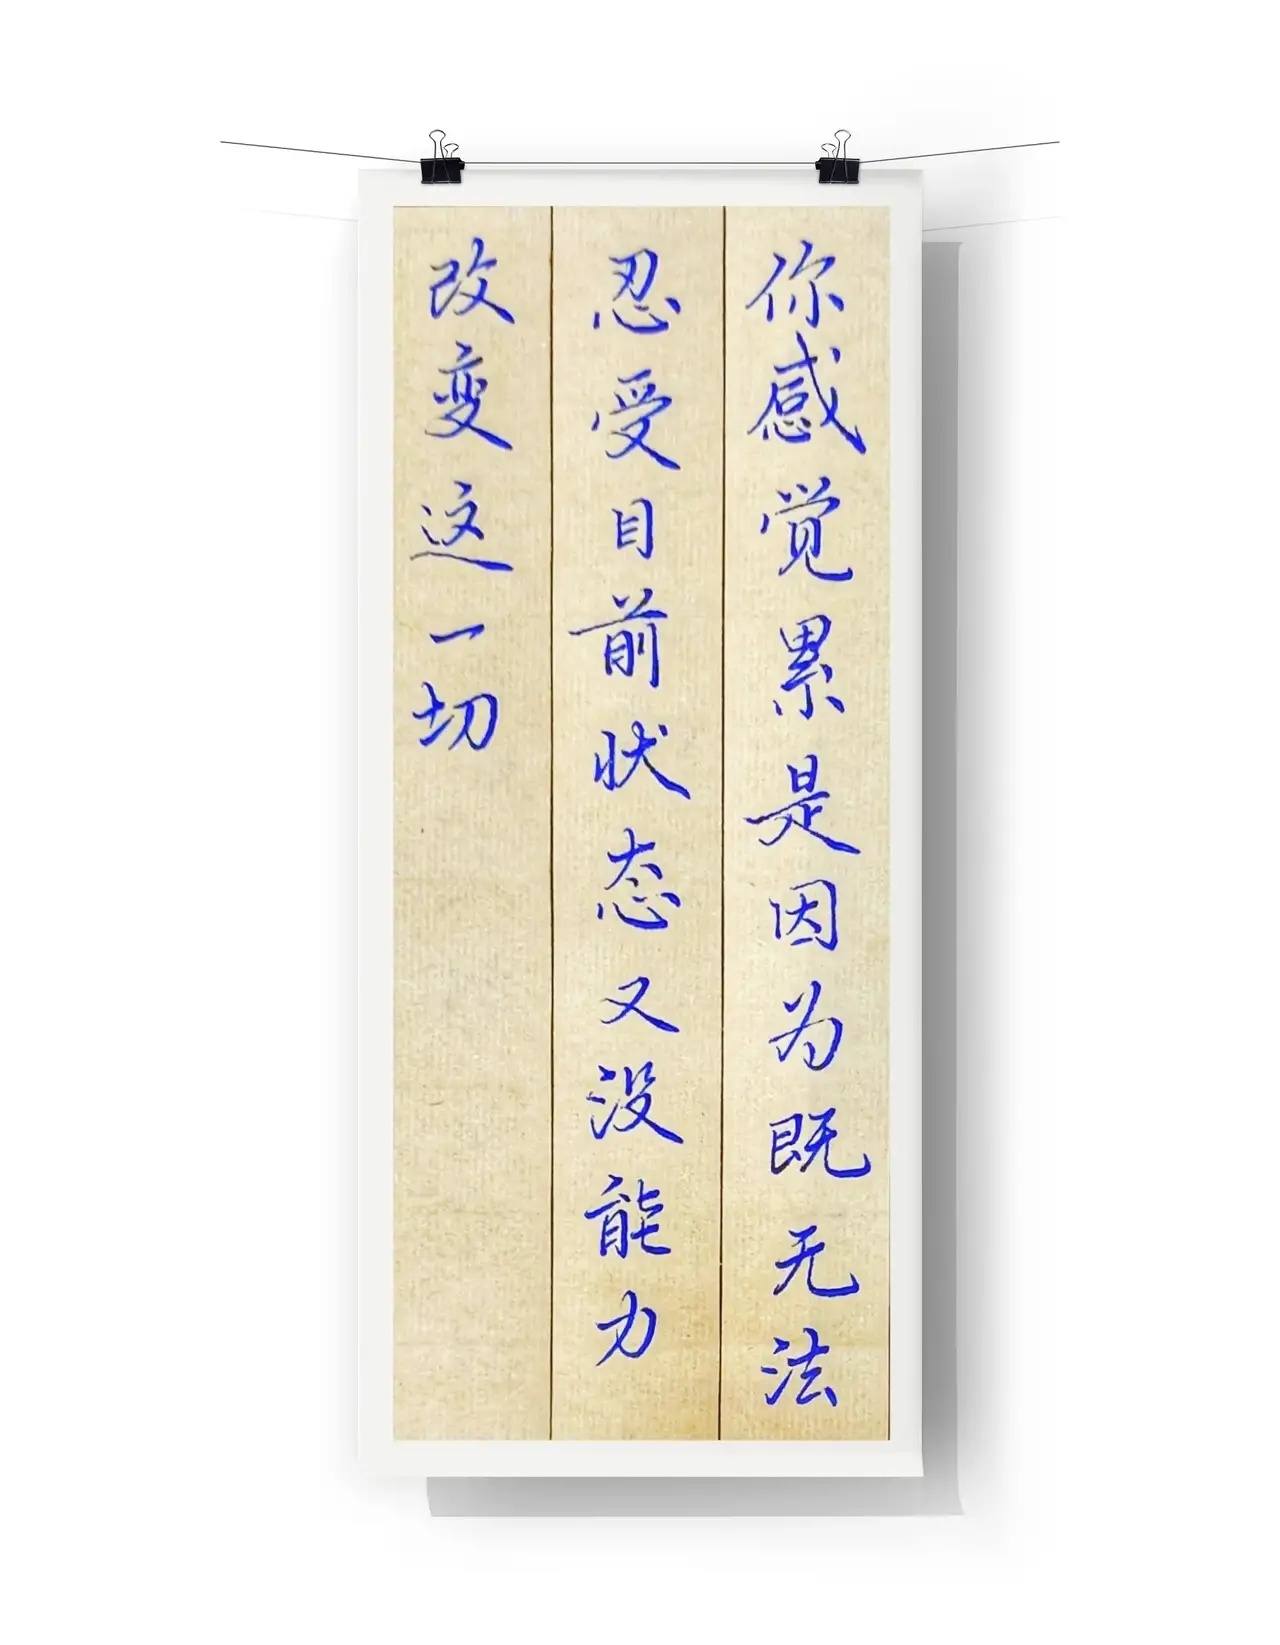 你感觉累是因为既无法
忍受目前状态又没能力
改变这一切